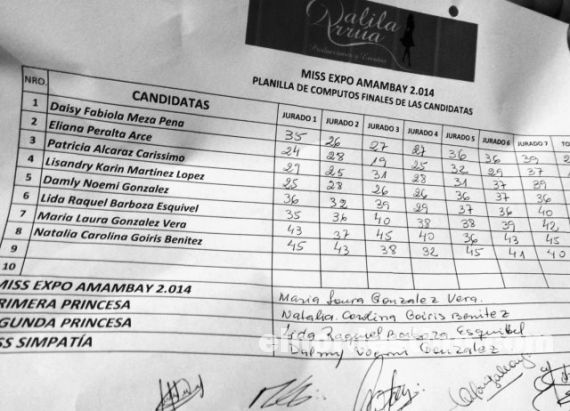 Dalila Orrua
Producciones y Eventos
MISS EXPO AMAMBAY 2.014
PLANILLA DE COMPUTOS FINALES DE LAS CANDIDATAS
NRO. CANDIDATAS JURADO 1 JURADO 2 JURADO 3 JURADO 4 JURADO 5 JURADO 6 JURADO 7
1 Daisy Fabiola Meza Pena 35 26 27 27 36 36 39
2 Eliana Peralta Arce 24 28 19 25 32 29 37
3 Patricia Alcaraz Carissimo 29 25 31 28 31 37 39
4 Lisandry Karin Martinez Lopez 25 28 26 26 36 37 36
5 Damly Noemi Gonzalez 36 32 39 29 37 36 40
6 Lida Raquel Barboza Esquivel 35 36 40 38 38 39 42
7 Maria Laura Gonzalez Vera 43 37 45 40 36 43 45
8 Natalia Carolina Goiris Benitez 45 43 38 32 45 41 40
9
10
MISS EXPO AMAMBAY 2.014 Maria Laura Gonzalez Vera.
RIMERA PRINCESA Natalia Carolina Goiris Benitez
GUNDA PRINCESA Lida Raquel Barboza Esquibel
SS SIMPATÍA Gonzalez